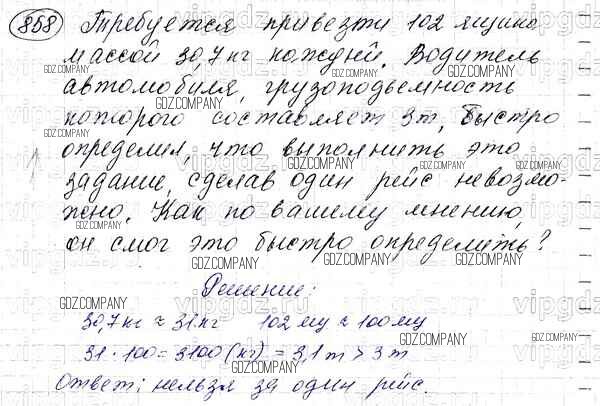 858 Требуется привезти 102 ящика
массой 30,7 кг каждый. Водитель
автомобиля, грузоподъемность
которого составляет 3т, быстро
определил, что выполнить это
задание, сделав один рейс невозмо-
жно. Как по вашему мнению,
он смог это быстро определить?
Решение:
30,7 кг ≈ 31 кг 102 ящ ≈ 100 ящ
31 · 100 = 3100 (кг) = 3,1 т > 3 т
Ответ: нельзя за один рейс.
GDZ.COMPANY
vipgdz.ru